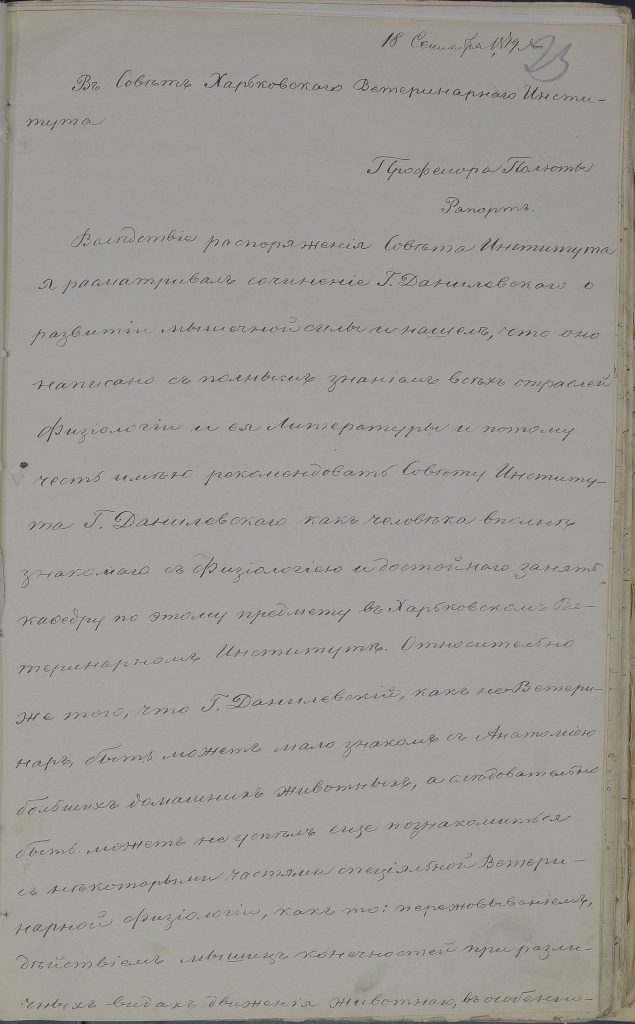 18 Сентября 1879 г.
23
Въ Совѣтъ Харьковскаго Ветеринарнаго Инсти-
тута
Професора Полюты
Рапортъ.
Вслѣдствіе распоряженія Совѣта Института
я расматривалъ сочиненіе Г. Данилевскаго о
развитіи мышечной силы и нашелъ, что оно
написано съ полнымъ знаніемъ всѣхъ отраслей
Физіологіи и ея Литературы и потому
честь имѣю рекомендовать Совѣту Институ-
та Г. Данилевскаго какъ человѣка вполнѣ
знакомаго съ Физіологіею и достойнаго занять
кафедру по этому предмету въ Харьковскомъ Ве-
теринарномъ Институтѣ. Относительно
же того, что Г. Данилевскій, какъ не Ветери-
наръ, быть можетъ мало знакомъ съ Анатоміею
большихъ домашнихъ животныхъ, а слѣдовательно
быть можетъ не успѣлъ еще познакомиться
съ нѣкоторыми частями спеціяльной Ветери-
нарной Физіологіи, какъ то: пережовываніемъ,
дѣйствіемъ мышицъ конечностей при разли-
чныхъ видахъ движенія животнаго, въ особенно-